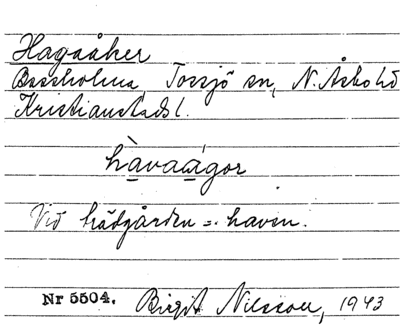 Hagaåker
Bassholma, Tossjö sn, N. Åsbo hd
Kristianstads l.
hàvaágor
Vid trädgården = haven.
Nr 5504. Birgit Nilsson, 1943